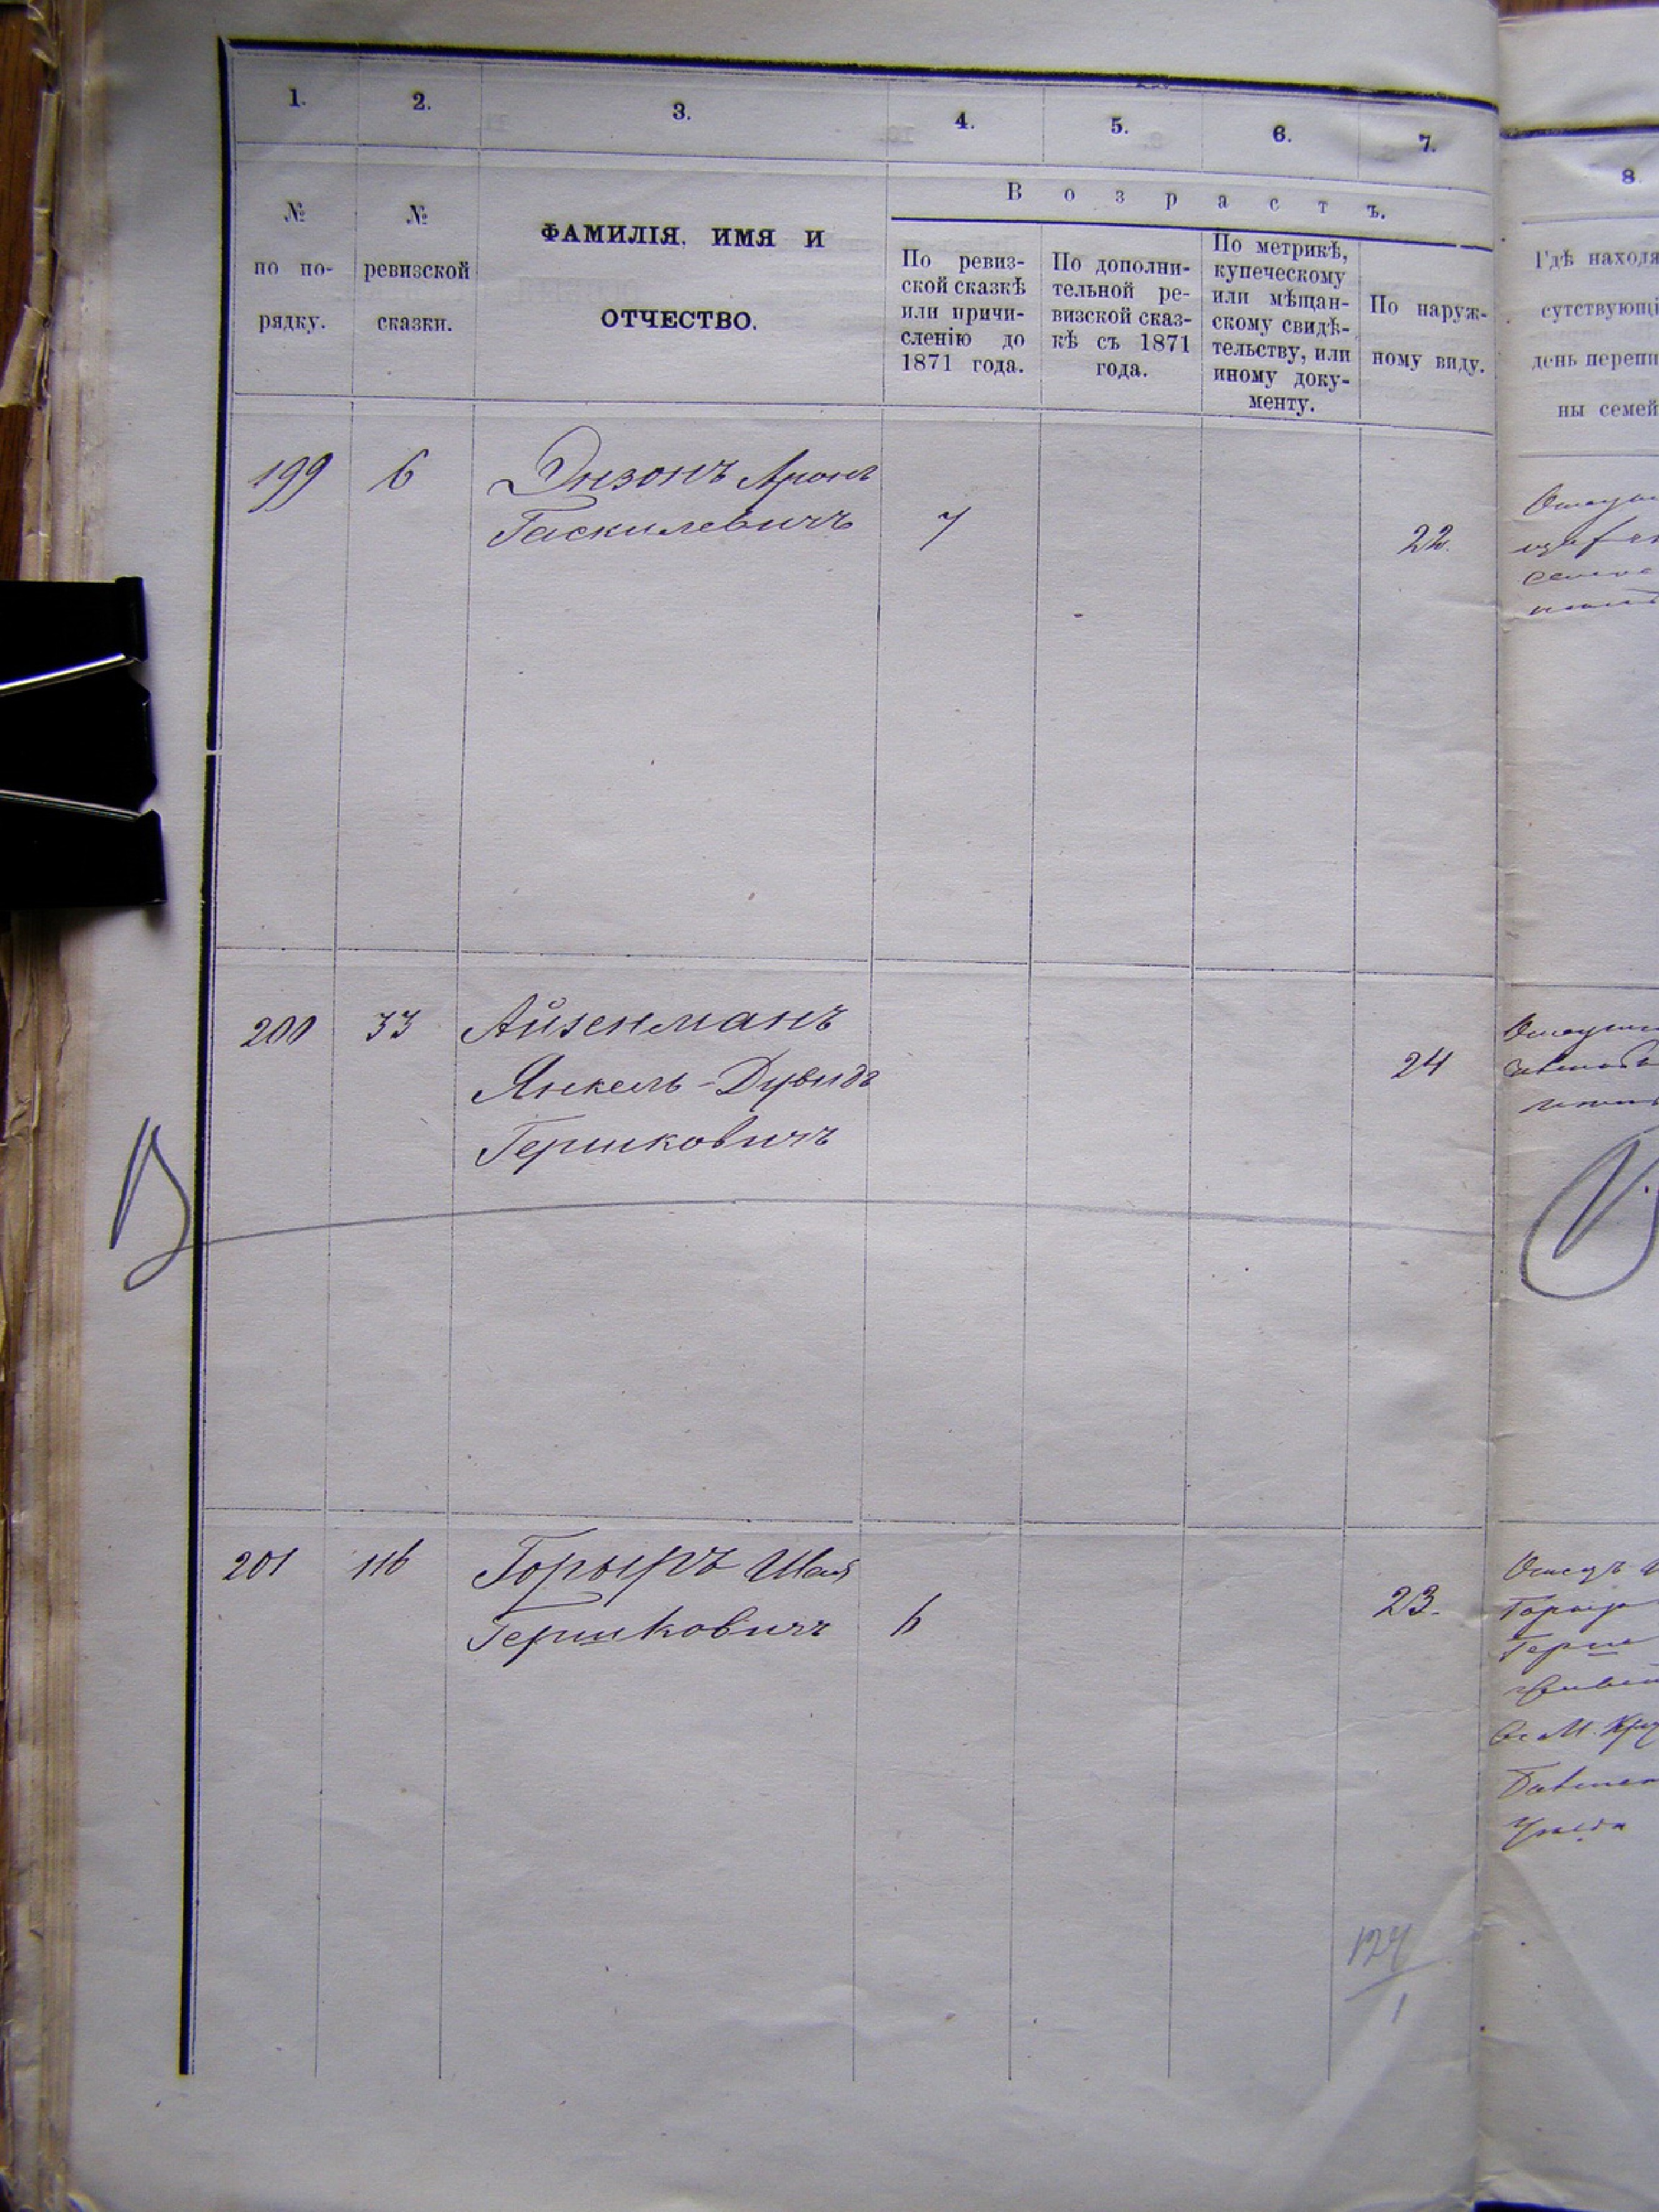 1. 2. 3. 4. 5. 6. 7.
8.
№ по по-рядку.
№ ревизской сказки.
ФАМИЛІЯ, ИМЯ И
ОТЧЕСТВО.
Возрастъ.
По ревиз-
ской сказкѣ
или причи-
сленію до
1871 года.
По дополни-
тельной ре-
визской сказ-
кѣ съ 1871
года.
По метрикѣ,
купеческому
или мѣщан-
скому свидѣ-
тельству, или
иному доку-
менту.
По наруж-
ному виду.
Гдѣ находя
сутствующі
день перепи
ны семей
199 6 Энзонъ Аронъ
Гаскилевичъ 7 22.
200 33 Айзенманъ
Янкель-Дувидъ 24
Гершковичъ
201 116 Горыръ Шая
Гершковичъ 6 23.
Отецъ
Герш
Уѣзда
124
1